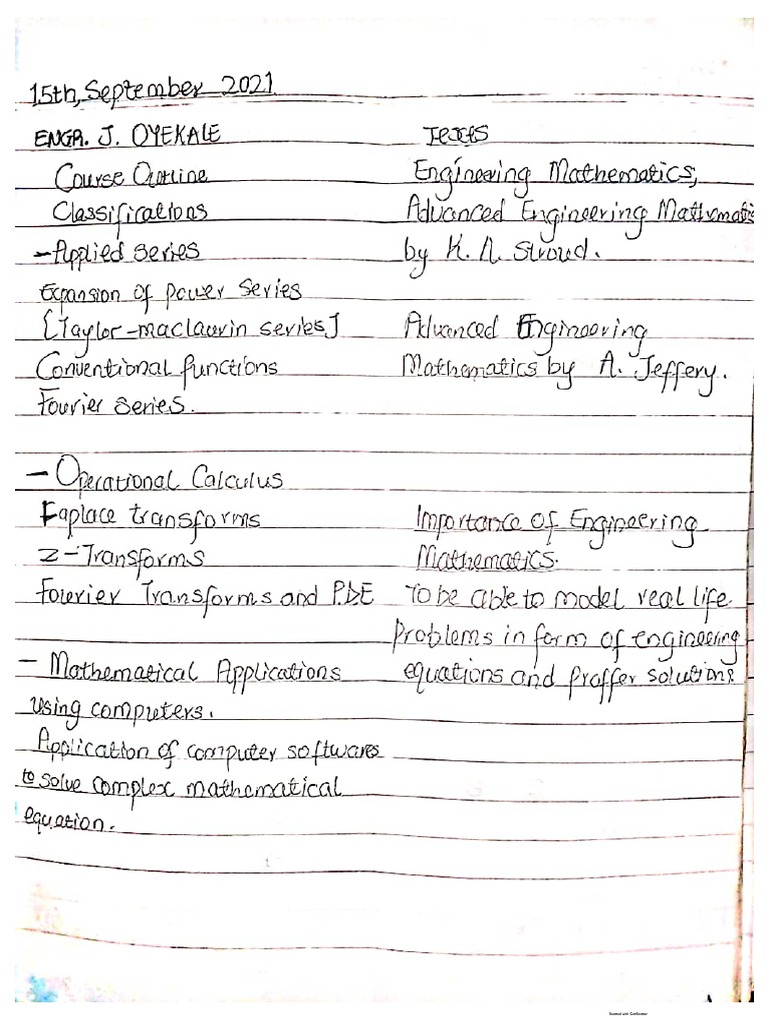 15th, September 2021
ENGR. J. OYEKALE
Course Outline
Classifications
- Applied Series
Expansion of power Series
[Taylor-maclaurin series]
Conventional functions
Fourier Series.
- Operational Calculus
Laplace transforms
Z-Transforms
Fourier Transforms and P.D.E
- Mathematical Applications
using computers.
Application of computer softwares
to solve complex mathematical
equation.
Texts
Engineering Mathematics,
Advanced Engineering Mathematics
by K. A. Stroud.
Advanced Engineering
Mathematics by A. Jeffery.
Importance of Engineering
Mathematics.
To be able to model real life
Problems in form of engineering
equations and proffer solutions
Scanned with CamScanner